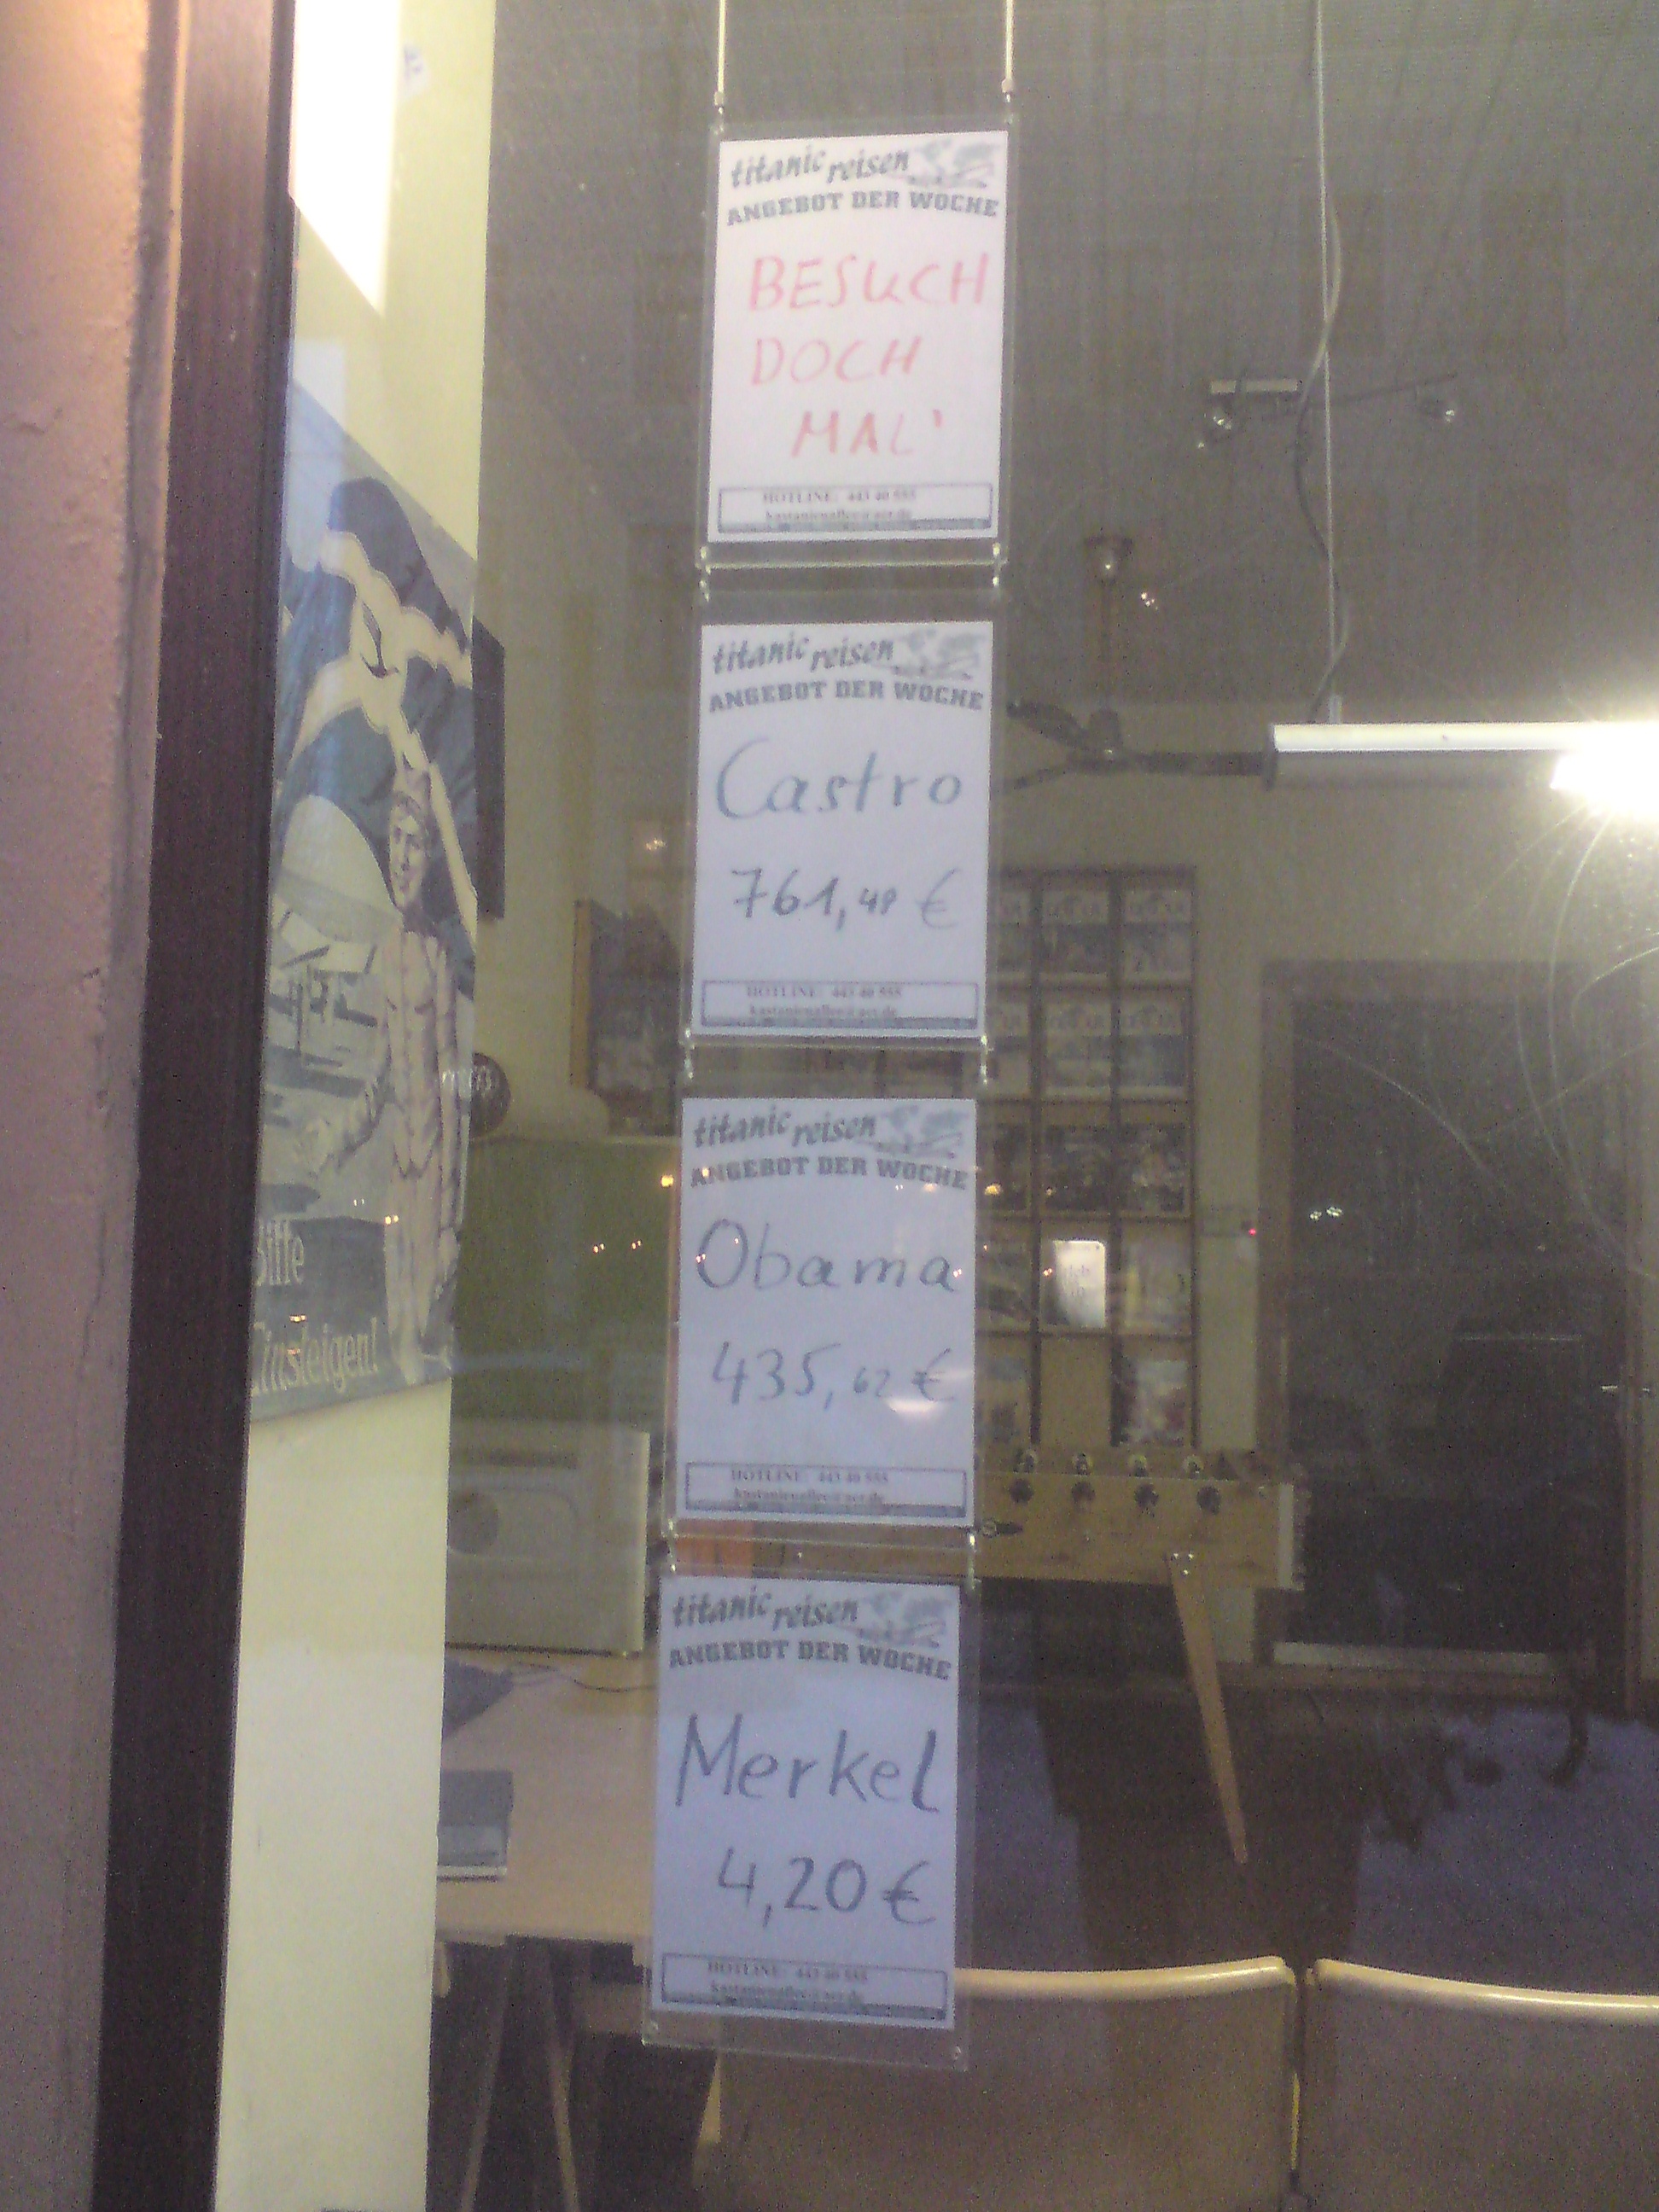 titanic reisen
ANGEBOT DER WOCHE
BESUCH
DOCH
MAL'
HOTLINE: 443 40 555
kastanienallee@aer.de
titanic reisen
ANGEBOT DER WOCHE
Castro
761,49 €
HOTLINE: 443 40 555
kastanienallee@aer.de
titanic reisen
ANGEBOT DER WOCHE
Obama
435,62 €
HOTLINE: 443 40 555
kastanienallee@aer.de
titanic reisen
ANGEBOT DER WOCHE
Merkel
4,20 €
HOTLINE: 443 40 555
kastanienallee@aer.de
Bitte
Einsteigen!